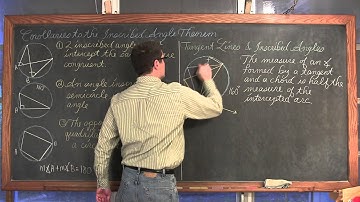 Corollaries to the Inscribed Angle Theorem
① 2 inscribed angles
intercept the sa
congruent.
② An angle insc
semicircle
angle
③ The oppo
quadrila
a circ
180°
A
B
m∡A + m∡B = 180
Tangent Lines & Inscribed Angles
The measure of an ∡
formed by a tangent
and a chord is half the
measure of the
intercepted arc.
160°